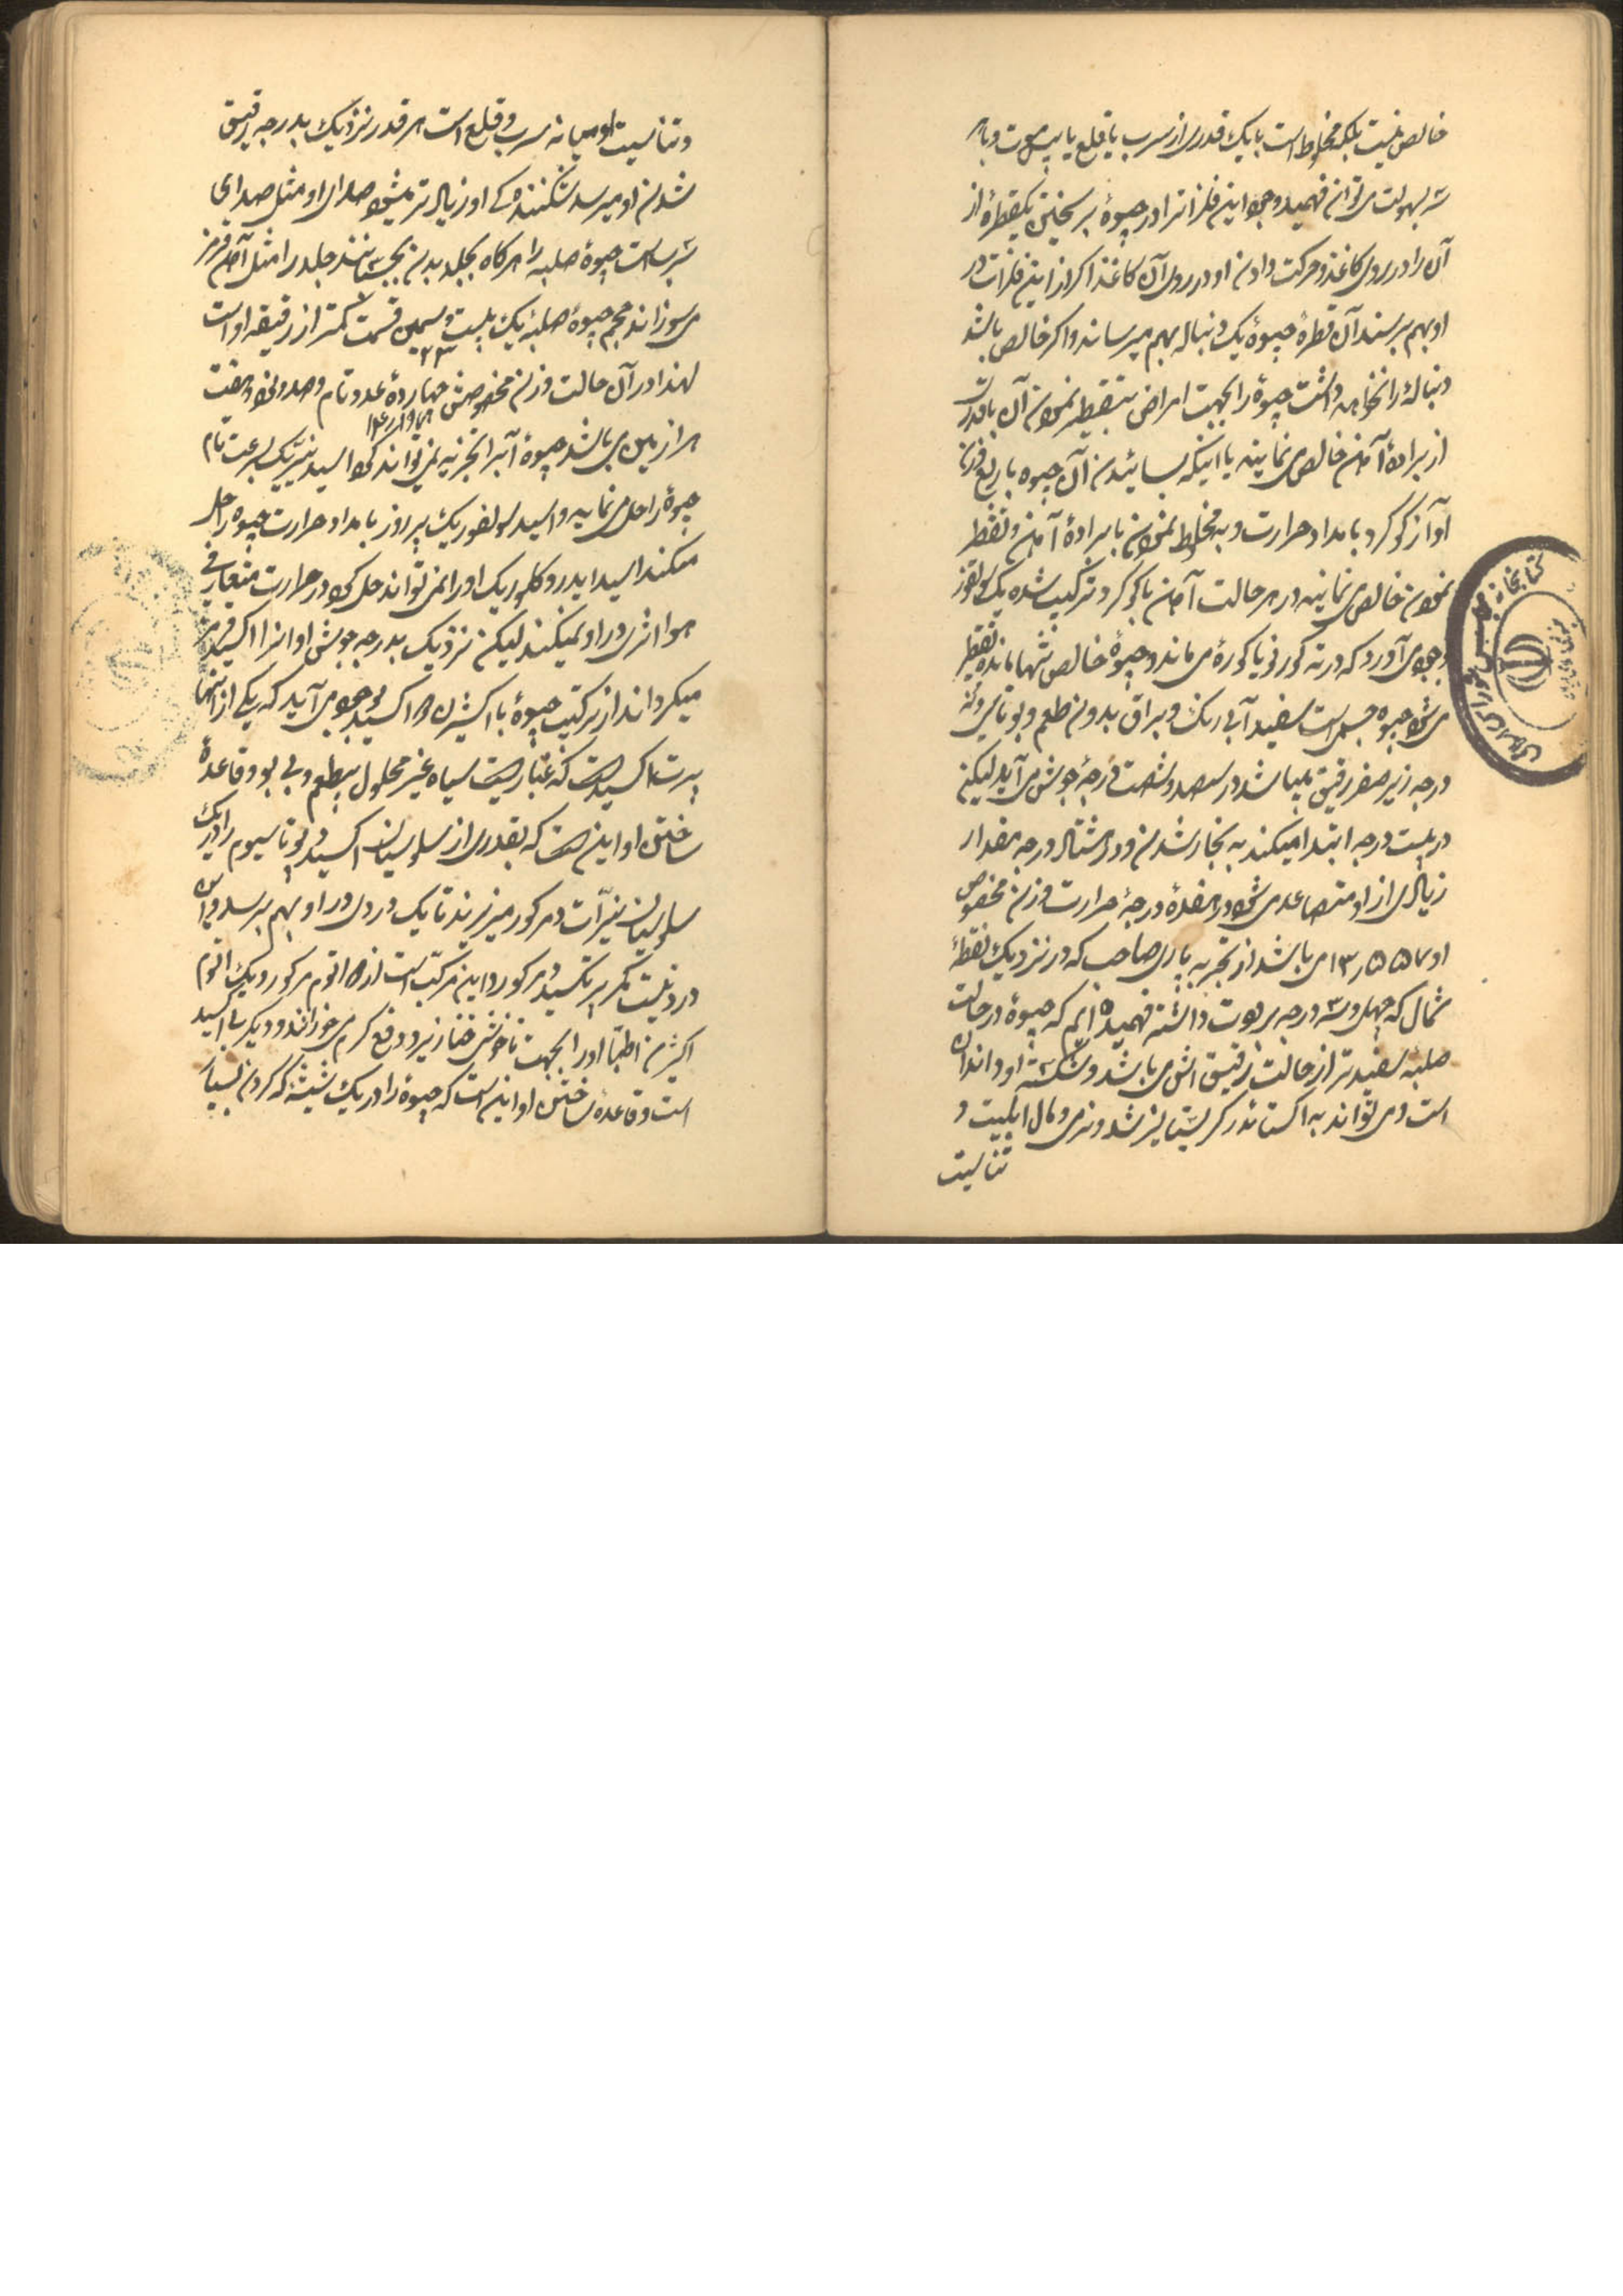 خالص نیست بلکه مخلوط است با یک قدری از سرب یا قلع یا بیسموت و با هر
سه بسهولت می توان فهمید وجود این فلزات را در جیوهٔ بر سختن یکقطرهٔ از
آن را در روی کاغذ و حرکت دادن او در روی آن کاغذ اکر از این فلزات در
او بهم برسند آن قطرهٔ جیوهٔ یک دنباله بهم میرساند و اکر خالص باشد
دنبالهٔ را نخواهد داشت جیوهٔ را بجهت امراض بتقطیر نمودن آن با قدری
از برادهٔ آهن خالص می نمایند یا اینکه بسائیدن آن جیوه با ربع وزن
او از کوکرد بامداد حرارت و به مخلوط نمودن با برادهٔ آهن و تقطیر
نمودن خالص می نمایند در هر حالت آهن با کوکرد ترکیب شده یک سولفور
بوجود می آورد که در ته کورنو یا کورهٔ می ماند و جیوهٔ خالص تنها مانده تقطیر
می شود جیوه جسمی است سفید آبی رنک و براق بدون طعم و بو تا سی و نه
درجه زیر صفر رقیق میباشد در سیصد و شصت درجهٔ جوش می آید لیکن
در بیست درجه ابتدا میکند به بخار شدن و در هشتاد درجه مقدار
زیادی از او متصاعد می شود در هفدهٔ درجهٔ حرارت وزن مخصوص
او ۱۳٫۵۵۷ می باشد از تجربه پاری صاحب که در نزدیک نقطهٔ
شمال که چهل و سه درجه برودت داشته فهمیده ایم که جیوهٔ در حالت
صلبه سفیدتر از حالت رقیق اش می باشد و شکسته او دانه دانه
است و می تواند به اکستائدر کریستالیز شد و نرمی و مال ابلیت و
تناسیت
و تناسیت او میانه سرب و قلع است هر قدر نزدیک بدرجه رقیق
شدن او میرسد شکنندکی او زیاد تر میشود صدای او مثل صدای
سرب است جیوهٔ صلبه را هر کاه بجلد بدن بچسبانند جلد را مثل آهن قرمز
می سوزاند حجم جیوهٔ صلبه یک بیست و سیمین قسمت کمتر از رقیقه او است
۲۳
لهذا در آن حالت وزن مخصوصش چهاردهٔ عدد تام و صد و نود و هفت
هزاریمین می باشد جیوهٔ آب را تجزیه نمی تواند کرد اسید نیتریک بسرعت تام
جیوهٔ را حل می نماید و اسید سولفوریک پر زور بامداد حرارت جیوه را حل
میکند اسید ایدروکلوریک او را نمی تواند حل کرد در حرارت متعارفی
هوا اثری در او نمیکند لیکن نزدیک بدرجه جوش او او را اکسید قرمز
میکرداند از ترکیب جیوهٔ با اکسیژن دو اکسید بوجود می آید که یکی از اینها
پرت اکسید است که غباریست سیاه غیر محلول بیطعم و بی بو و قاعدهٔ
ساختن او این است که بقدری از سلوسیان اکسید دو پوتاسیوم را در یک
سلوسیان نیترات دمرکور میریزند تا یک دردی در او بهم برسد و این
درد نیست مکر پرتکسید دمرکور و این مرکب است از ۲ اتوم مرکور و یک اتوم
اکیژن اطبا او را بجهت ناخوشی خنازیر و دفع کرم می خورانند و دیکر بی اکسید
است و قاعدهٔ ساختن او این است که جیوهٔ را در یک شیشهٔ که کردن بسیار